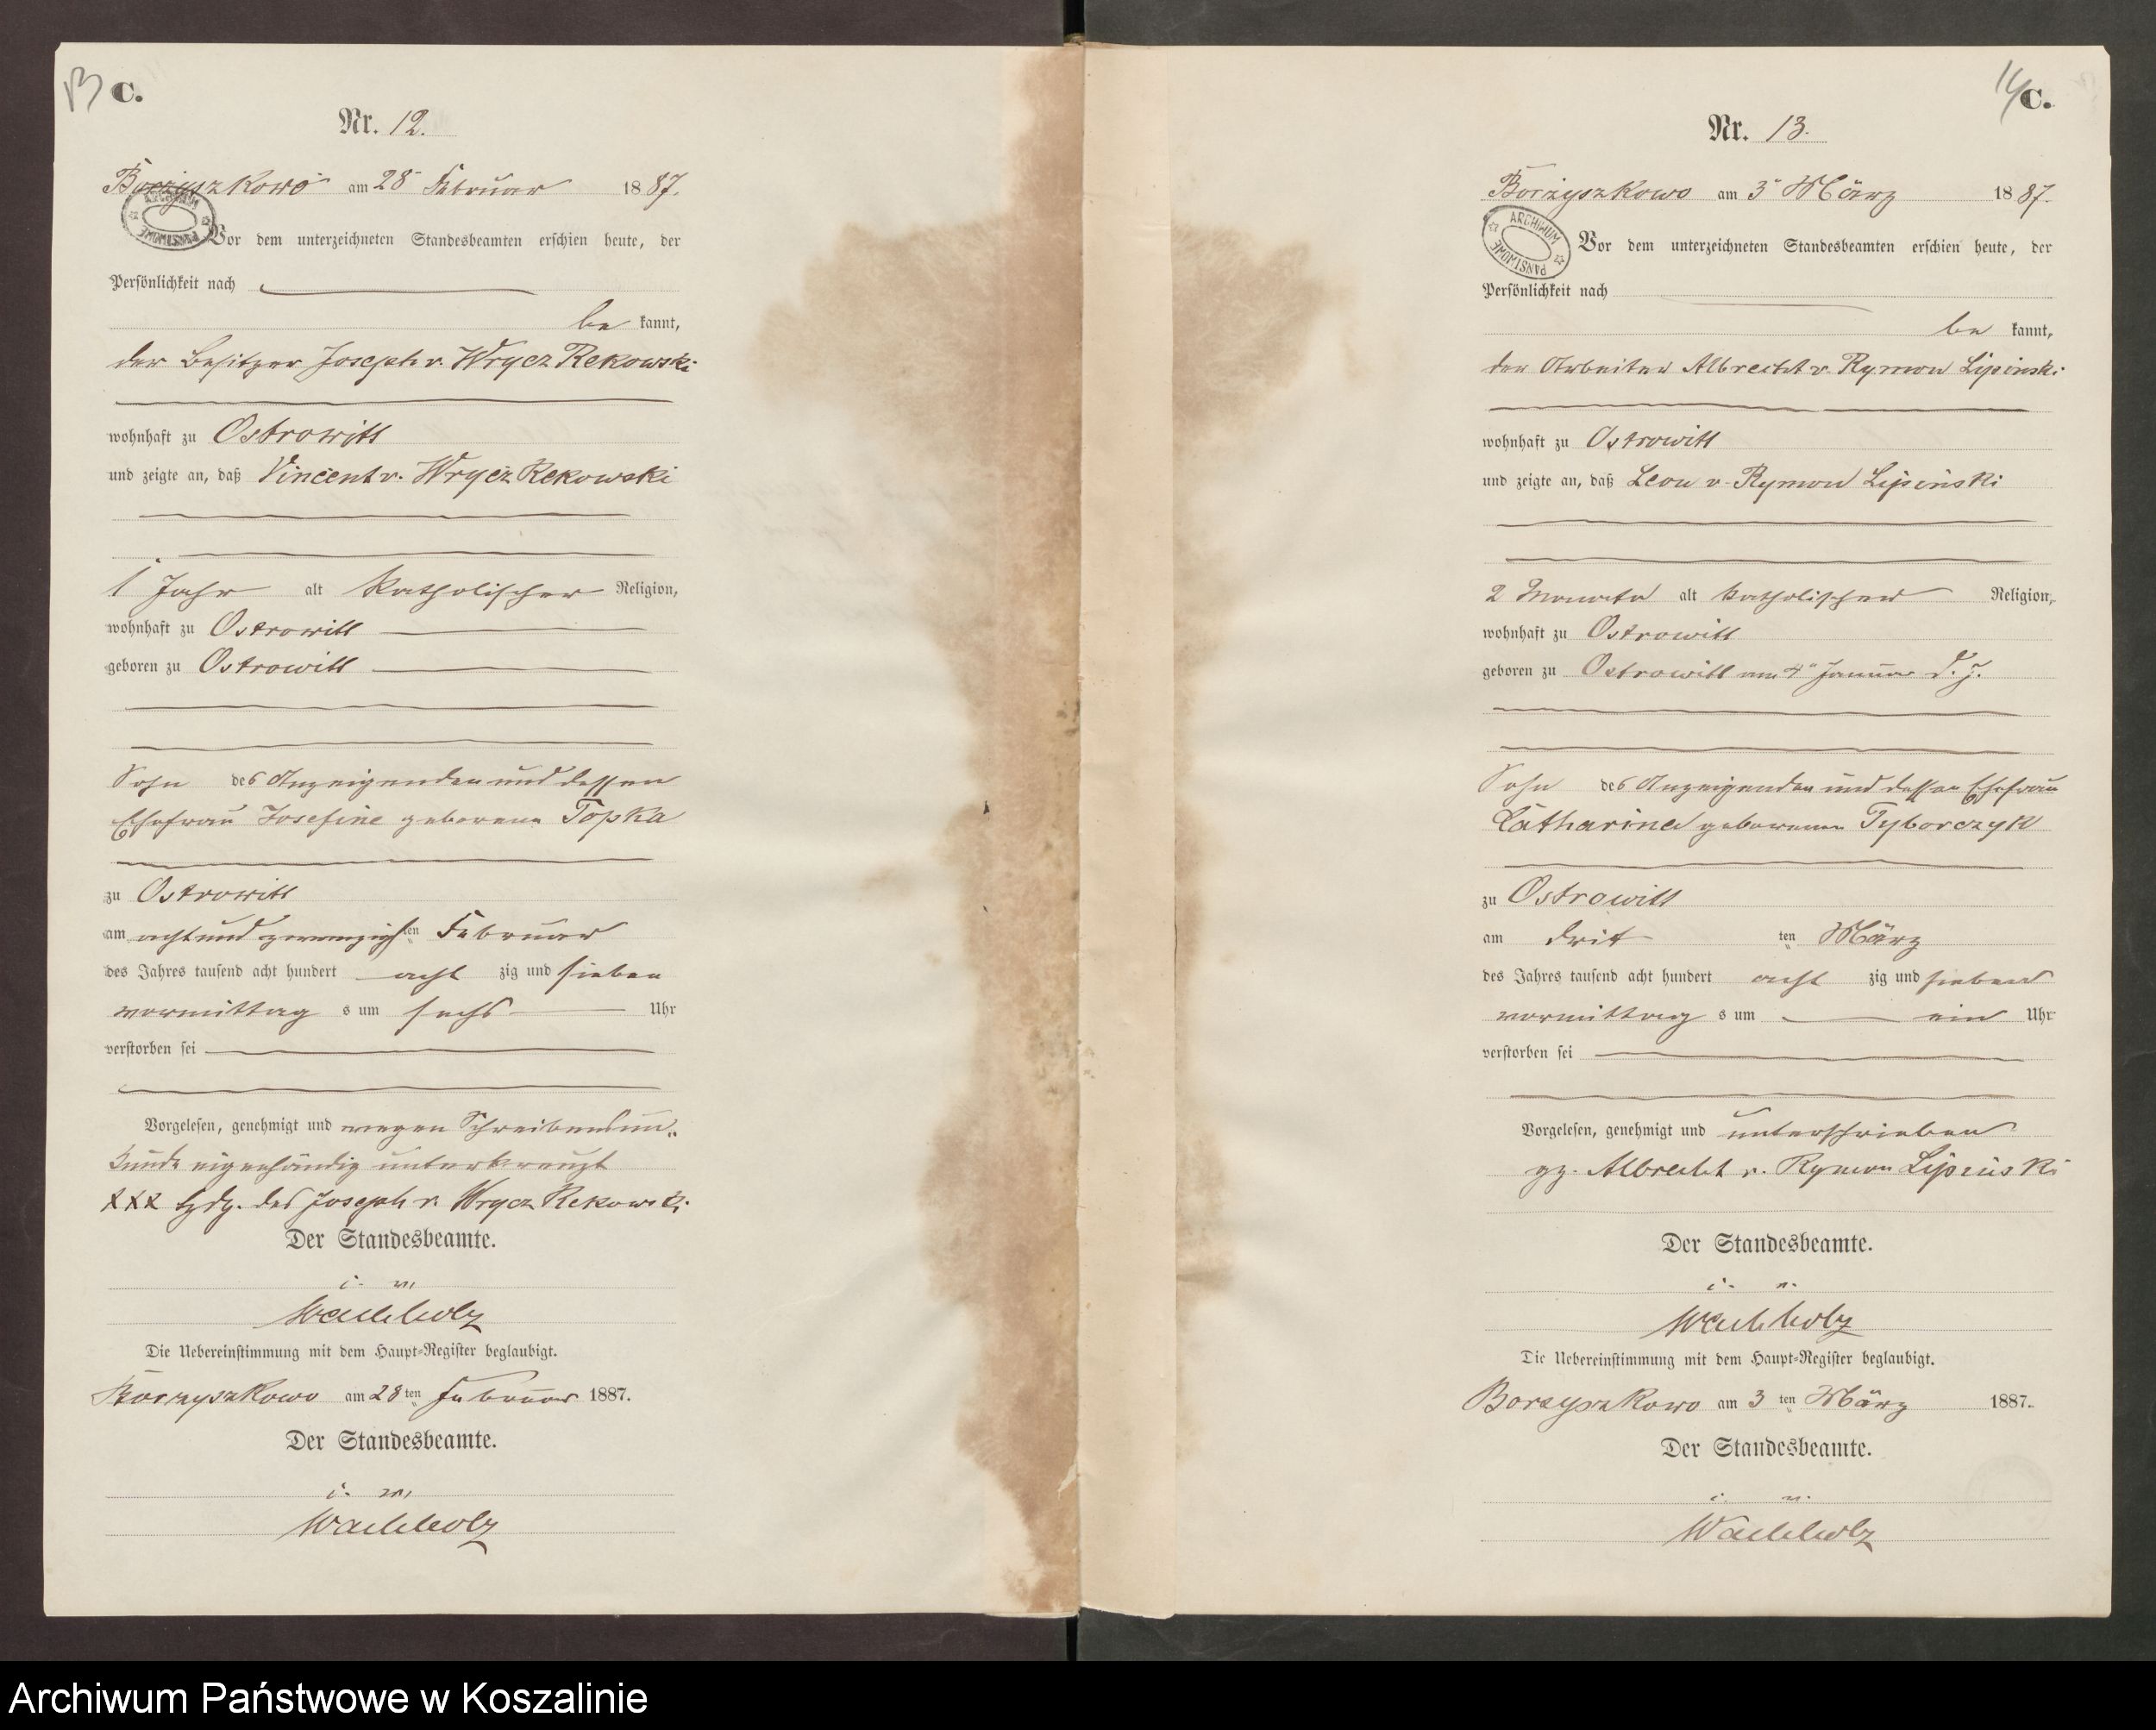 13 C.
Nr. 12.
Borzyszkowo am 28ᵗ Februar 1887.
ARCHIWUM PAŃSTWOWE
Vor dem unterzeichneten Standesbeamten erschien heute, der
Persönlichkeit nach
be kannt,
der Besitzer Joseph v. Wrycz Rekowski
wohnhaft zu Ostrowitt
und zeigte an, daß Vincent v. Wrycz Rekowski
1 Jahr alt katholischer Religion,
wohnhaft zu Ostrowitt
geboren zu Ostrowitt
Sohn des Anzeigenden und dessen
Ehefrau Josefine geborene Topka
zu Ostrowitt
am acht und zwanzigsten Februar
des Jahres tausend acht hundert acht zig und sieben
vormittag s um sechs Uhr
verstorben sei
Vorgelesen, genehmigt und wegen Schreibensun-
kunde eigenhändig unterkreuzt
XXX hdzg. des Joseph v. Wrycz Rekowski
Der Standesbeamte.
i. v.
Wachholz
Die Uebereinstimmung mit dem Haupt-Register beglaubigt.
Borzyszkowo am 28ten Februar 1887.
Der Standesbeamte.
i. v.
Wachholz
14 C.
Nr. 13.
Borzyszkowo am 3ᵗ März 1887.
ARCHIWUM PAŃSTWOWE
Vor dem unterzeichneten Standesbeamten erschien heute, der
Persönlichkeit nach
be kannt,
der Arbeiter Albrecht v. Rymon Lipinski
wohnhaft zu Ostrowitt
und zeigte an, daß Leon v. Rymon Lipinski
2 Monate alt katholischer Religion,
wohnhaft zu Ostrowitt
geboren zu Ostrowitt am 4ᵗ Januar d. J.
Sohn des Anzeigenden und dessen Ehefrau
Catharina geborenen Tyborczyk
zu Ostrowitt
am dritten März
des Jahres tausend acht hundert acht zig und sieben
vormittag s um ein Uhr
verstorben sei
Vorgelesen, genehmigt und unterschrieben
gz. Albrecht v. Rymon Lipinski
Der Standesbeamte.
i. v.
Wachholz
Die Uebereinstimmung mit dem Haupt-Register beglaubigt.
Borzyszkowo am 3 ten März 1887.
Der Standesbeamte.
i. v.
Wachholz
Archiwum Państwowe w Koszalinie